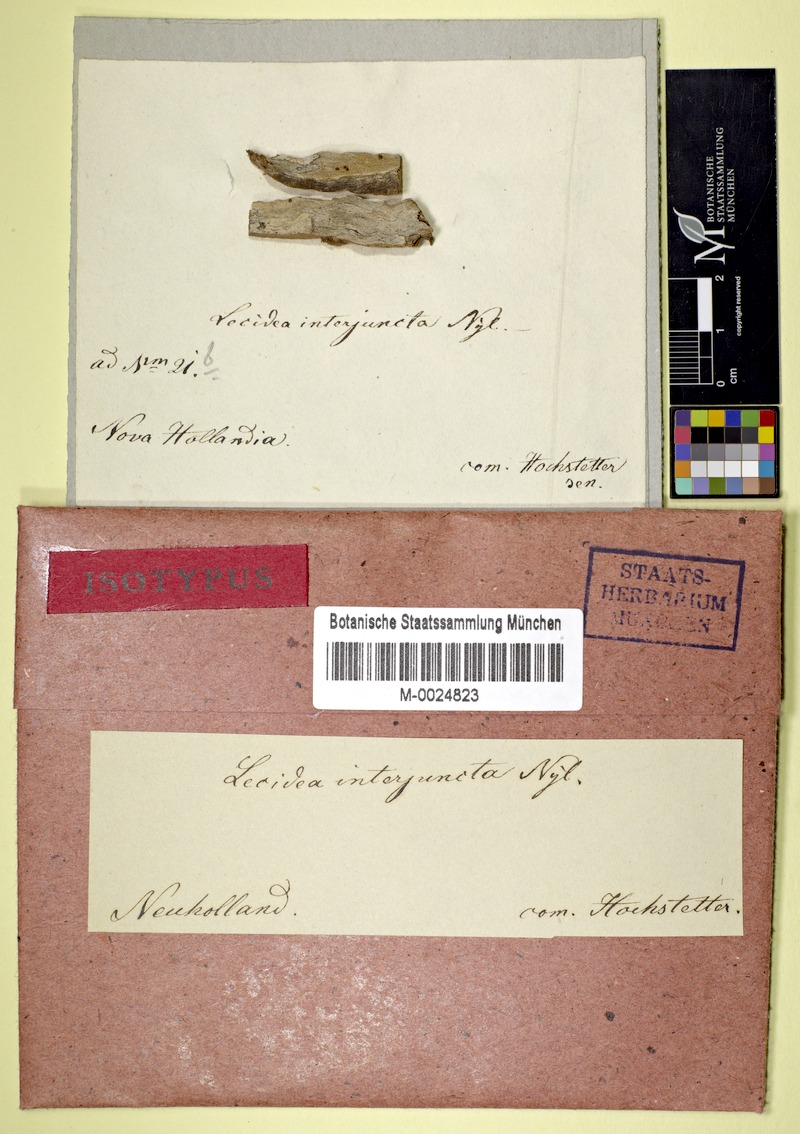 Lecidea interjuncta Nyl.
ad Nrm 21. b
Nova Hollandia.
com. Hochstetter
sen.
BOTANISCHE
STAATSSAMMLUNG
MÜNCHEN
M
copyright reserved
0 1 2
cm
ISOTYPUS
STAATS-
HERBARIUM
MÜNCHEN
Botanische Staatssammlung München
M-0024823
Lecidea interjuncta Nyl.
Neuholland.
com. Hochstetter.